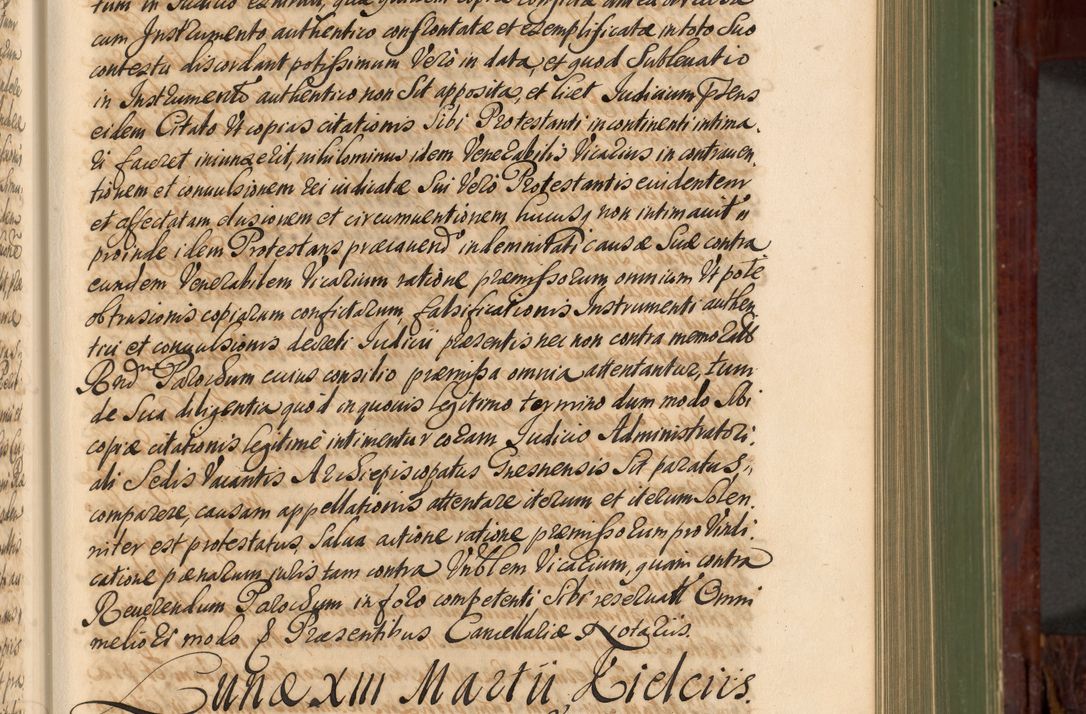 tum in Judicio
cum Instrumento authentico confrontatæ et exemplificatæ in toto suo
contextu discordant potissimum Verò in data, et quod Sublevatio
in Instrumento authentico non sit apposita, et licet Judicium Prens
eidem Citato Vt copias citationis Sibi Protestanti incontinenti intima,
ri faceret iniunxerit, nihilominus idem Venerabilis Vicarius in contraven,
tionem et convulsionem rei iudicatæ Sui Verò Protestantis evidentem
et affectatam elusionem et circumventionem hucusq non intimavit
proinde idem Protestans præcavend indemnitati causæ Suæ contra
eundem Venerabilem Vicarium ratione præmissorum omnium Vt pote
obtrusionis copiarum confictarum falsificationis Instrumenti authen
tici et convulsionis decreti Judicii præsentis nec non contra memoratt
Rndm Parochum cuius consilio præmissa omnia attentantur, tum
de Sua diligentia quod in quovis legitimo termino dum modo Sibi
copiæ citationis legitimè intimentur coram Judicio Administratori,
ali Sedis Vacantis Archiepiscopatus Gnesnensis Sit paratus
comparere, causam appellationis attentare iterum et iterum Solen
niter est protestatus, Salva actione ratione præmissorum pro Vindi,
catione pænarum juris tam contra Vnblem Vicarium, quam contra
Reverendum Parochum in foro competenti Sibi reservatt Omni
meliori modo & Præsentibus Cancellariæ Notariis.
Lunæ XIII Martii, Kielciis.